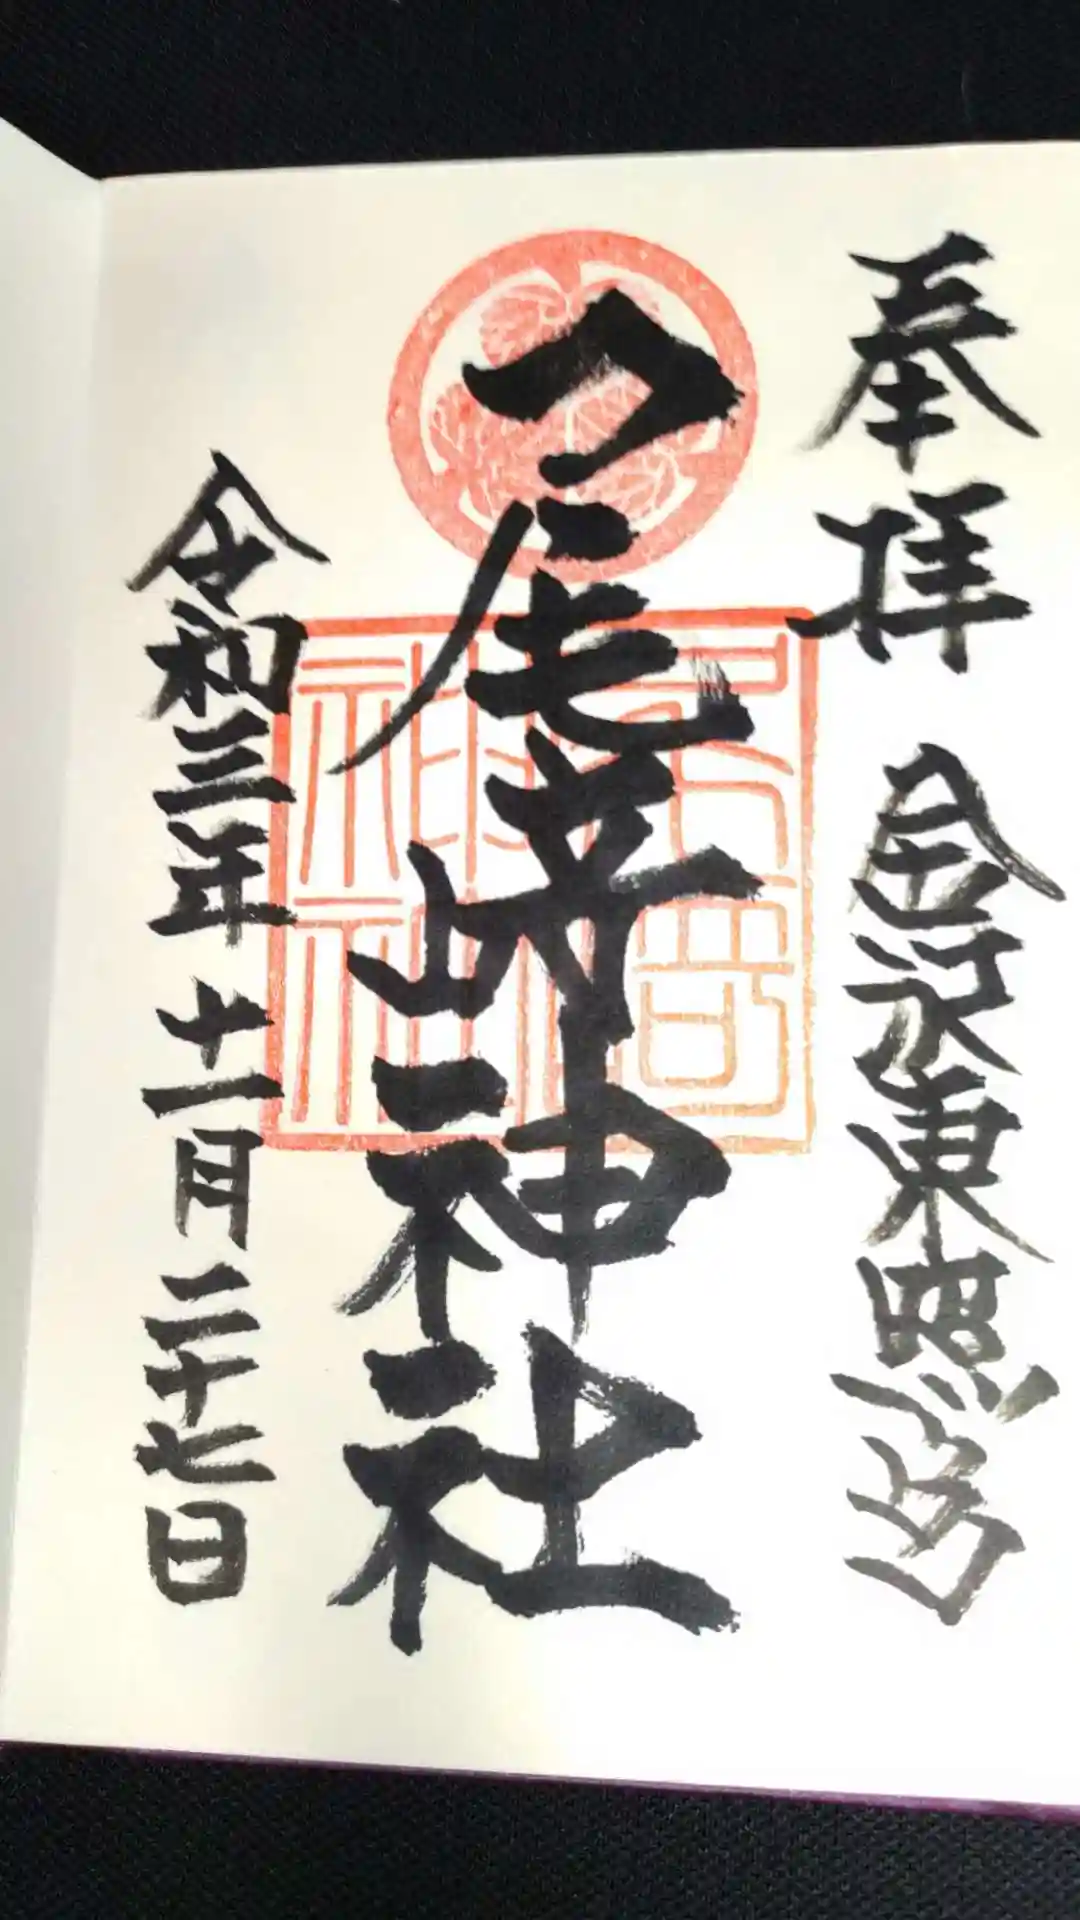 奉拝 金沢東照宮
尾崎神社
令和三年十一月二十七日